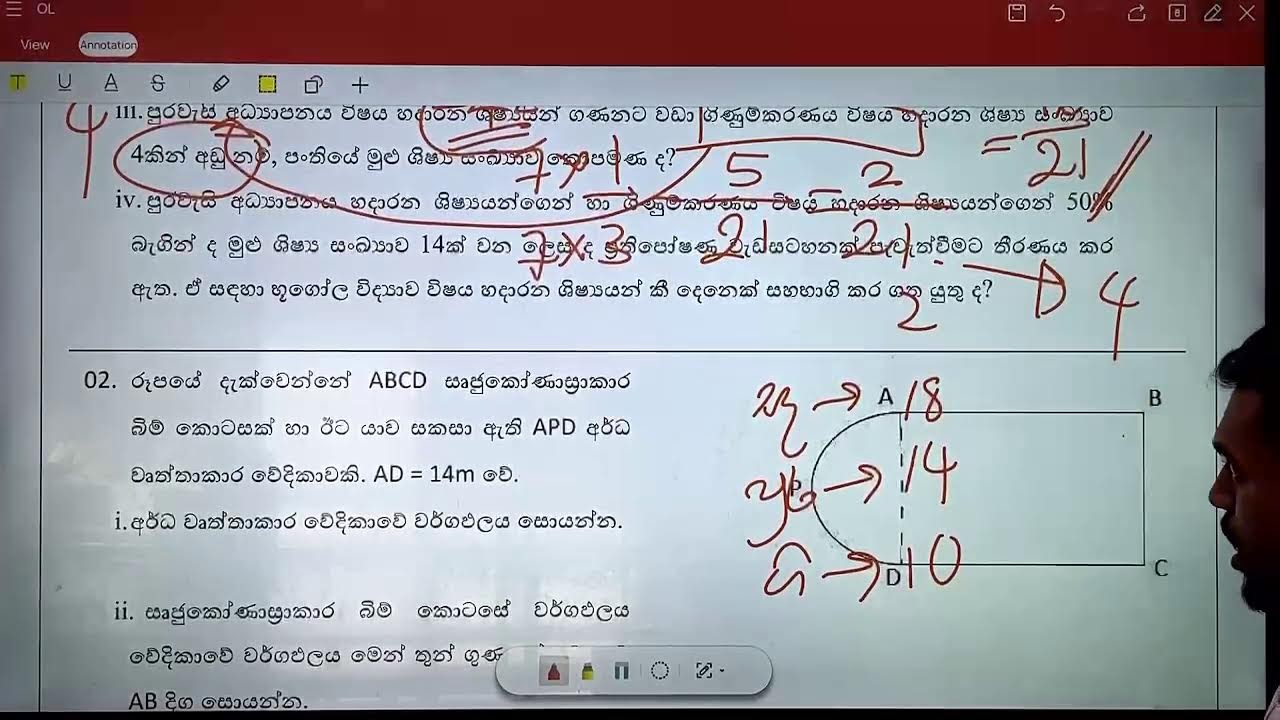 OL
View Annotation
iii. පුරවැසි අධ්‍යාපනය විෂය හදාරන ශිෂ්‍යයන් ගණනට වඩා ගිණුම්කරණය විෂය හදාරන ශිෂ්‍ය සංඛ්‍යාව
4කින් අඩු නම්, පංතියේ මුළු ශිෂ්‍ය සංඛ්‍යාව කොපමණ ද?
iv. පුරවැසි අධ්‍යාපනය හදාරන ශිෂ්‍යයන්ගෙන් හා ගිණුම්කරණය විෂය හදාරන ශිෂ්‍යයන්ගෙන් 50%
බැගින් ද මුළු ශිෂ්‍ය සංඛ්‍යාව 14ක් වන ලෙස ද ප්‍රතිපෝෂණ වැඩසටහනක් පැවැත්වීමට තීරණය කර
ඇත. ඒ සඳහා භූගෝල විද්‍යාව විෂය හදාරන ශිෂ්‍යයන් කී දෙනෙක් සහභාගි කර ගත යුතු ද?
4
7 × 1
7 × 3
5
21
2
21
= 21
2
4
02. රූපයේ දැක්වෙන්නේ ABCD සෘජුකෝණාස්‍රාකාර
බිම් කොටසක් හා ඊට යාව සකසා ඇති APD අර්ධ
වෘත්තාකාර වේදිකාවකි. AD = 14m වේ.
i. අර්ධ වෘත්තාකාර වේදිකාවේ වර්ගඵලය සොයන්න.
ii. සෘජුකෝණාස්‍රාකාර බිම් කොටසේ වර්ගඵලය
වේදිකාවේ වර්ගඵලය මෙන් තුන් ගුණ
AB දිග සොයන්න.
A B
→ 18
P → 14
ගි → 10
D C